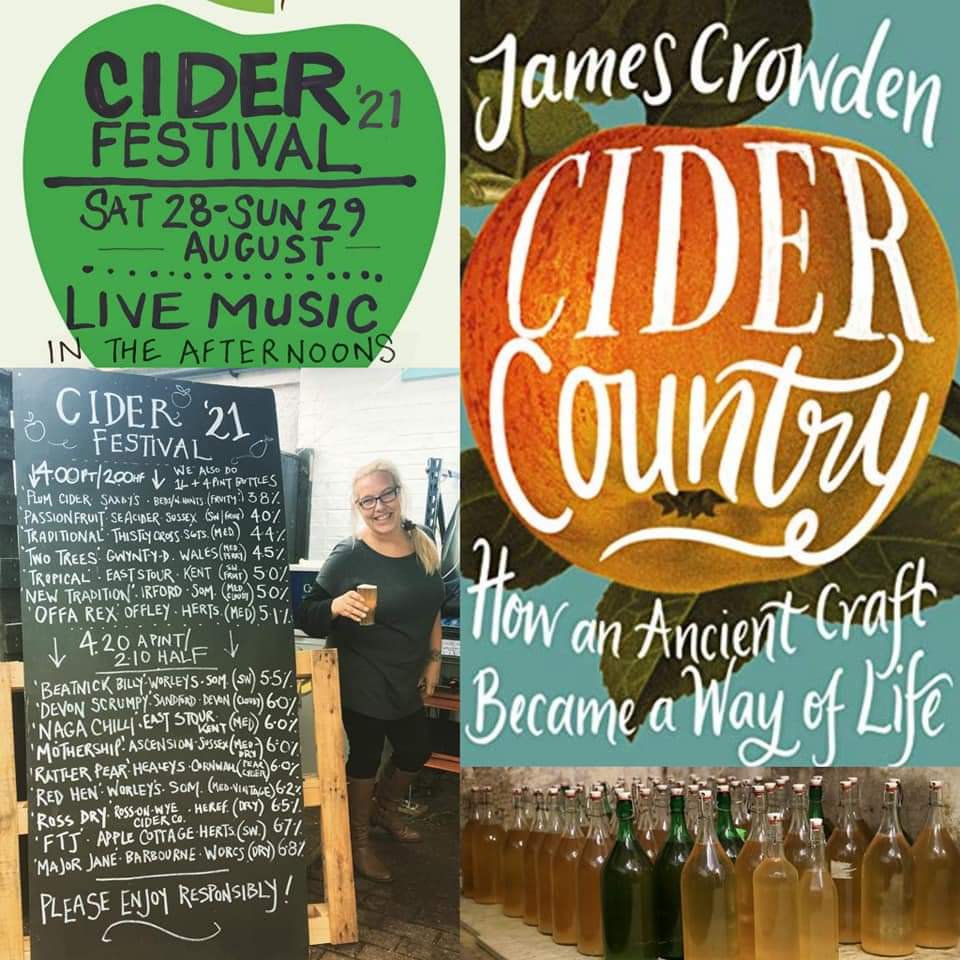 CIDER '21
FESTIVAL
SAT 28-SUN 29
AUGUST
LIVE MUSIC
IN THE AFTERNOONS
James Crowden
CIDER
Country
How an Ancient Craft
Became a Way of Life
CIDER '21
FESTIVAL
↓4.00PT/2.00HF ↓ WE ALSO DO
1L + 4 PINT BOTTLES
'PLUM CIDER' SAXBY'S · (FRUITY!) 3.8%
'PASSIONFRUIT' SEACIDER SUSSEX (SW/FRUIT) 4.0%
'TRADITIONAL' THISTLY CROSS · (MED) 4.4%
'TWO TREES' GWYNT-Y-D. WALES (MED PERRY) 4.5%
'TROPICAL' · EAST STOUR · KENT (SW FRUIT) 5.0%
'NEW TRADITION' · SOM. (MED CLOUDY) 5.0%
'OFFA REX' OFFLEY · HERTS. (MED) 5.1%
↓ 4.20 A PINT/ ↓
2.10 HALF
'BEATNICK BILLY' WORLEY'S · SOM. (SW) 5.5%
'DEVON SCRUMPY' SANDFORD · DEVON (CLOUDY) 6.0%
'NAGA CHILLI' EAST STOUR · KENT (MED) 6.0%
'MOTHERSHIP' ASCENSION · SUSSEX (MED-DRY) 6.0%
'RATTLER PEAR' HEALEYS · CORNWALL (PEAR CIDER) 6.0%
'RED HEN' WORLEY'S · SOM. (MED·VINTAGE) 6.2%
'ROSS DRY' ROSS-ON-WYE CIDER CO. HEREF. (DRY) 6.5%
'FTJ' APPLE COTTAGE · HERTS. (SW.) 6.7%
'MAJOR JANE' · BARBOURNE · WORCS (DRY) 6.8%
PLEASE ENJOY RESPONSIBLY!